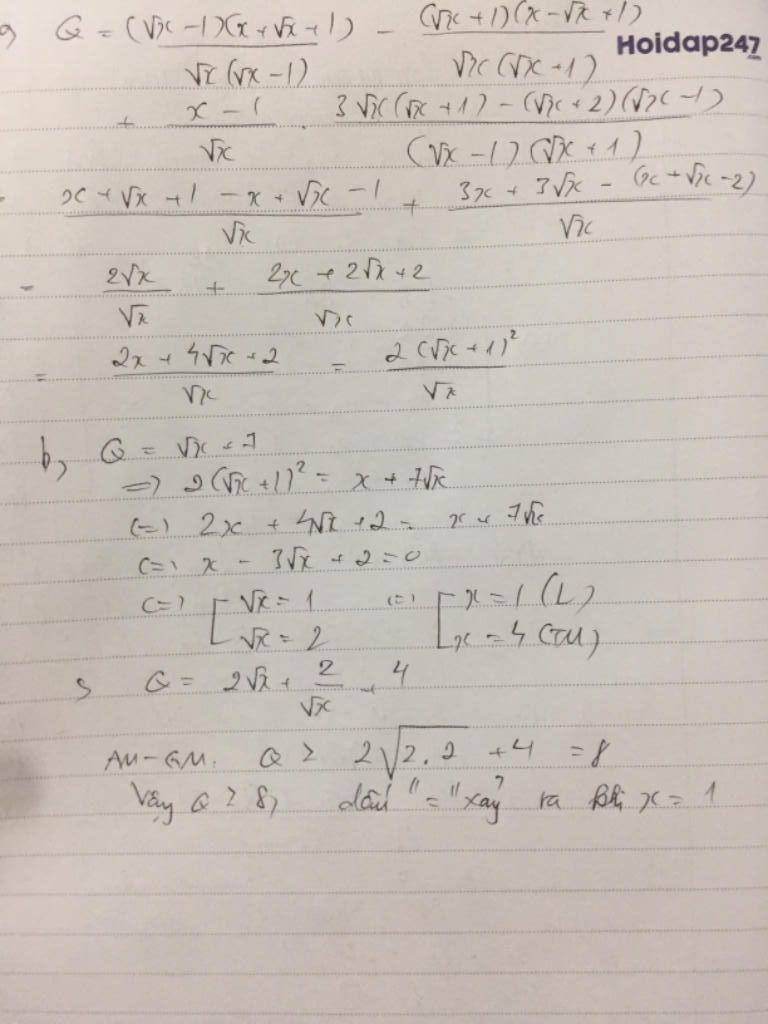 a) Q = (√x - 1)(x + √x + 1) / √x(√x - 1) - (√x + 1)(x - √x + 1) / √x(√x + 1)
Hoidap247
+ x - 1 / √x . 3√x(√x + 1) - (√x + 2)(√x - 1) / (√x - 1)(√x + 1)
= x + √x + 1 - x + √x - 1 / √x + 3x + 3√x - (x + √x - 2) / √x
= 2√x / √x + 2x + 2√x + 2 / √x
= 2x + 4√x + 2 / √x = 2(√x + 1)² / √x
b, Q = √x + 7
=> 2(√x + 1)² = x + 7√x
(=) 2x + 4√x + 2 = x + 7√x
(=) x - 3√x + 2 = 0
(=) [ √x = 1 (=) [ x = 1 (L)
√x = 2 x = 4 (TM)
Q = 2√x + 2 / √x + 4
AM-GM: Q ≥ 2√2.2 + 4 = 8
Vậy Q ≥ 8, dấu "=" xảy ra khi x = 1